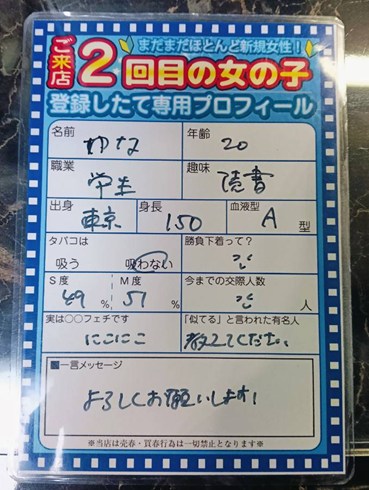 まだまだほとんど新規女性！
ご来店2回目の女の子
登録したて専用プロフィール
名前 ゆな 年齢 20
職業 学生 趣味 読書
出身 東京 身長 150 血液型 A 型
タバコは 勝負下着って？
吸う 吸わない
S度 M度 今までの交際人数
49 % 51 % 人
実は○○フェチです 「似てる」と言われた有名人
にこにこ 教えてください。
■一言メッセージ
よろしくお願いします！
※当店は売春・買春行為は一切禁止となります※